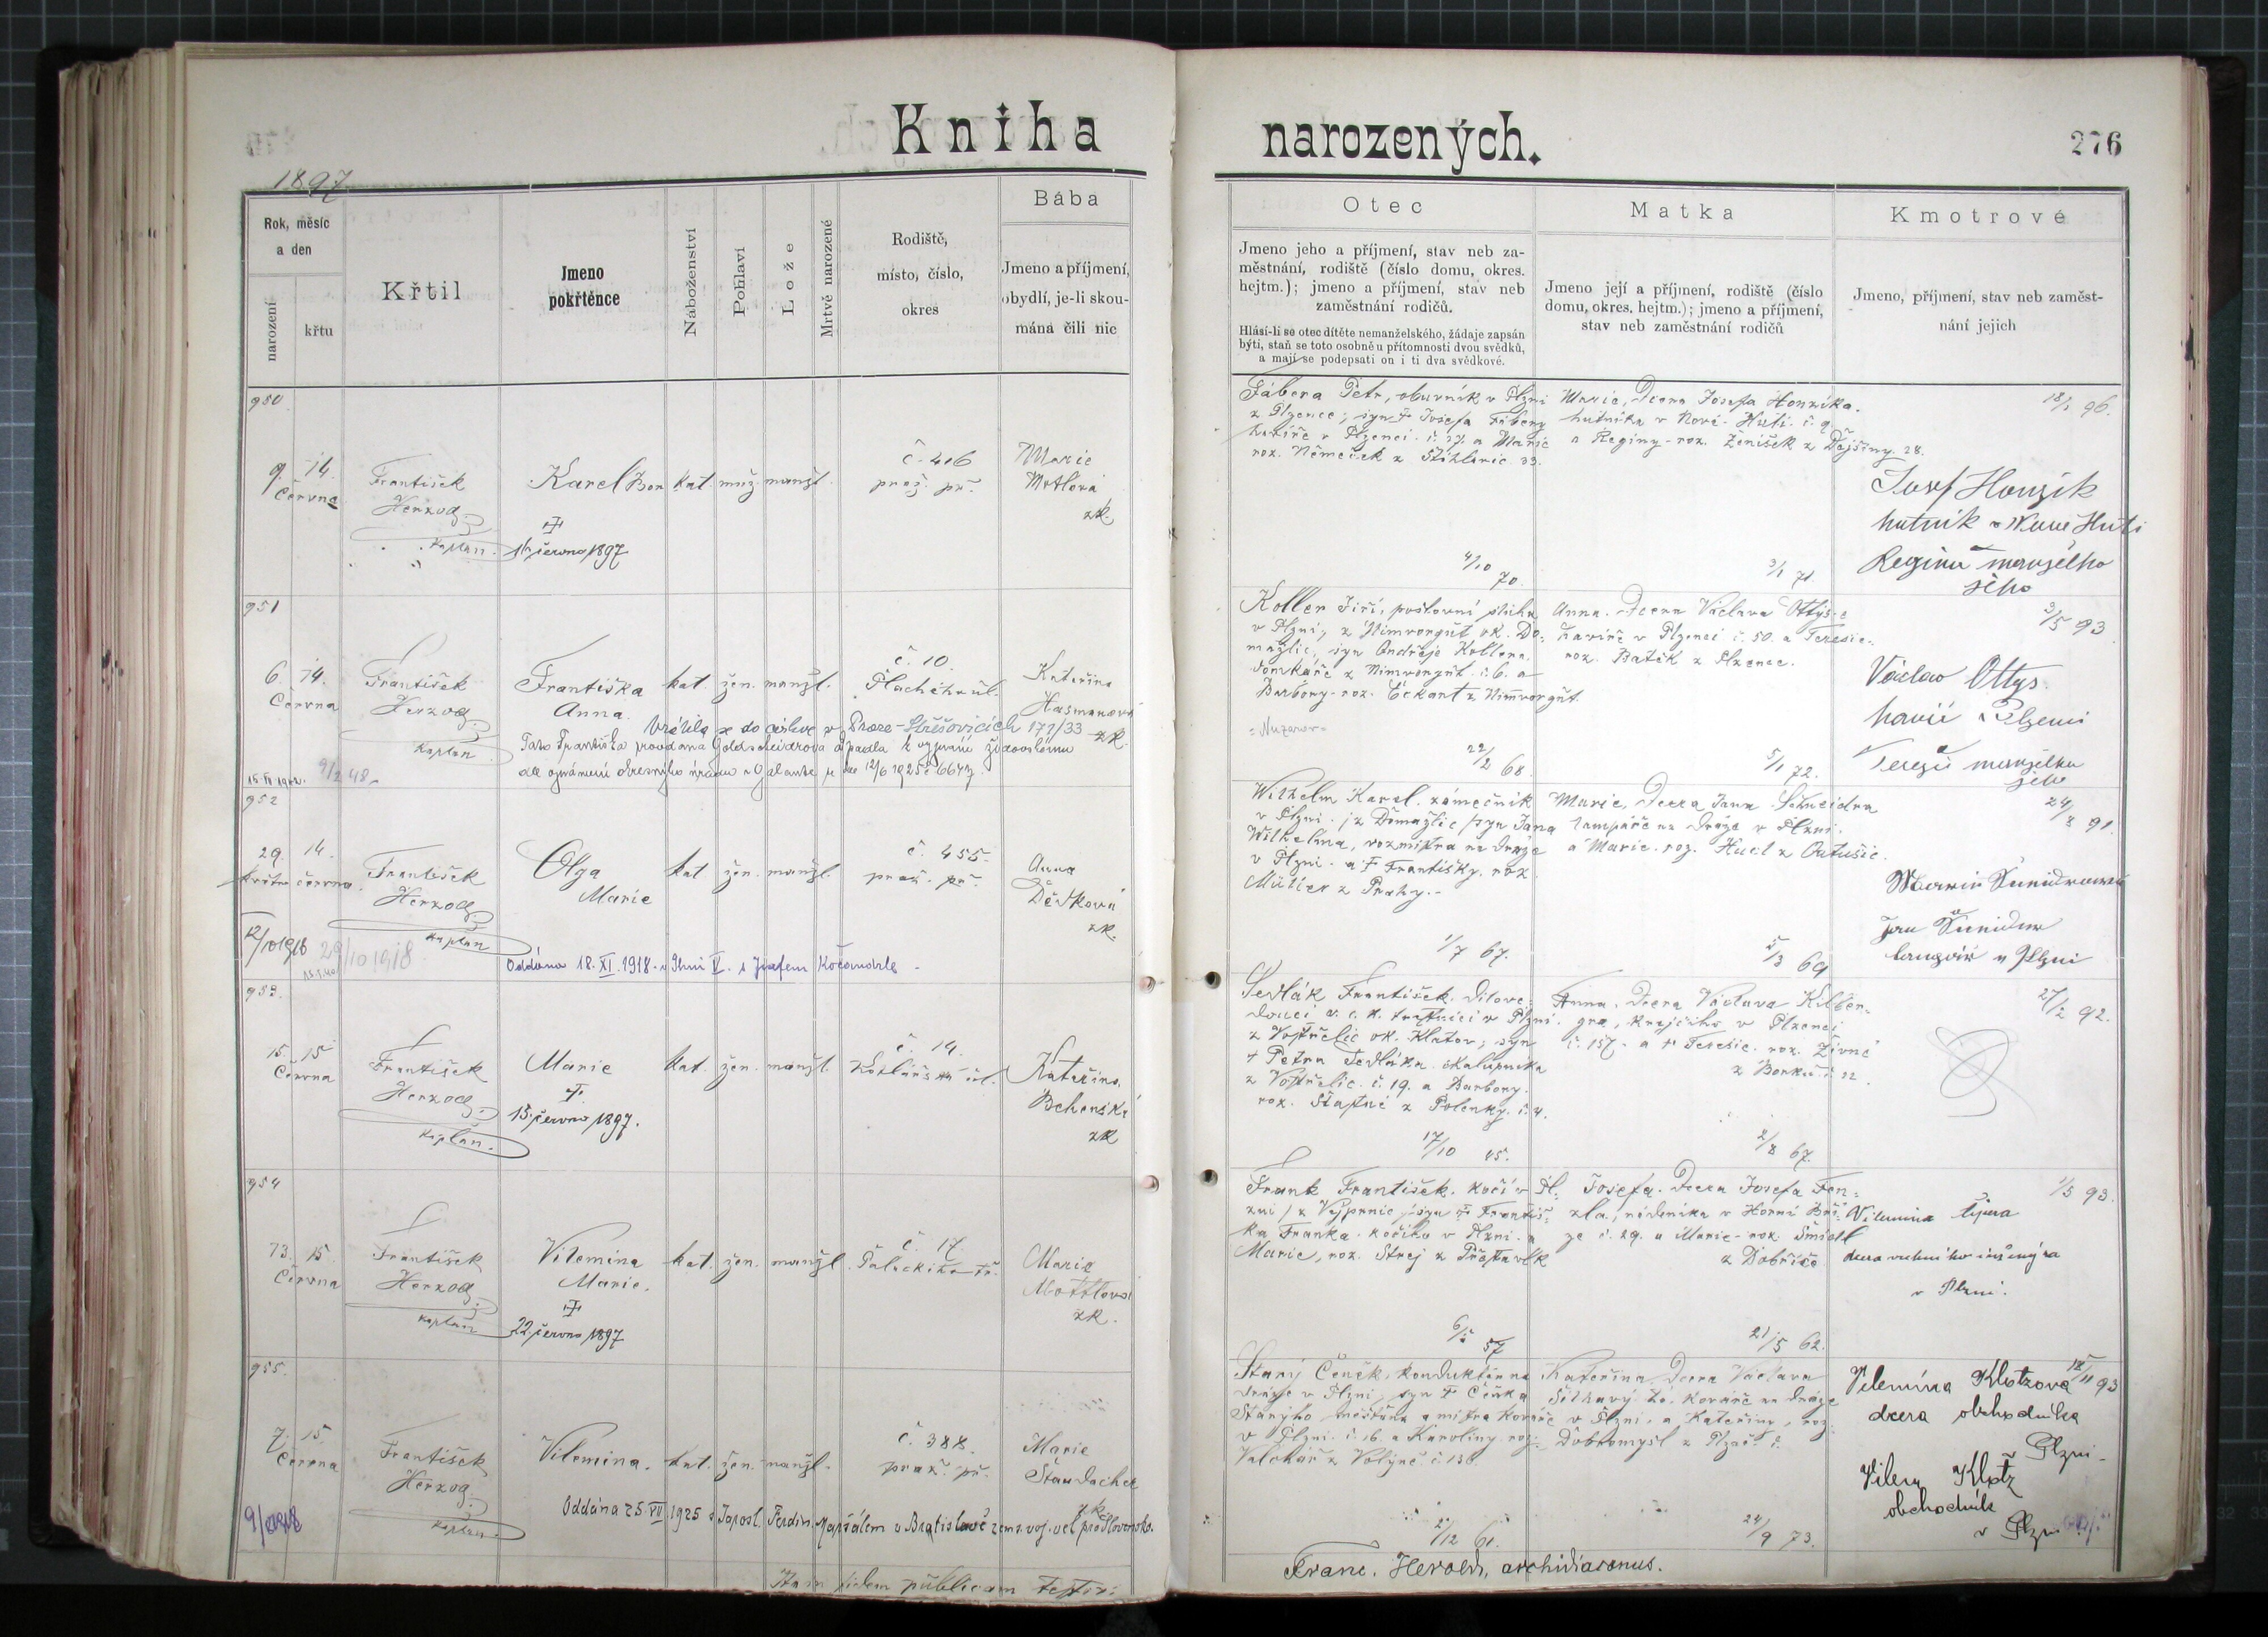 Kniha
narozených.
276
1897
Rok, měsíc
a den
narození
křtu
Křtil
Jmeno
pokřtěnce
Náboženství
Pohlaví
Lože
Mrtvě narozené
Rodiště,
místo, číslo,
okres
Bába
Jmeno a příjmení,
obydlí, je-li skou-
mána čili nic
Otec
Jmeno jeho a příjmení, stav neb za-
městnání, rodiště (číslo domu, okres.
hejtm.); jmeno a příjmení, stav neb
zaměstnání rodičů.
Hlásí-li se otec dítěte nemanželského, žádaje zapsán
býti, staň se toto osobně u přítomnosti dvou svědků,
a mají se podepsati on i ti dva svědkové.
Matka
Jmeno její a příjmení, rodiště (číslo
domu, okres. hejtm.); jmeno a příjmení,
stav neb zaměstnání rodičů
Kmotrové
Jmeno, příjmení, stav neb zaměst-
nání jejich
950
9. 14.
Června
František
Herzog
kaplan.
Karel
kat. muž. manžl.
14. června 1897
č. 406
praž. př.
Marie
zk.
Fábera Petr, obuvník v Plzni
z Plzence; syn Josefa Fábery
havíře v Plzenci. č. 27. a Marie
roz. Němeček z
4/10 70.
Marie, Dcera Josefa Honzíka.
hutníka v Nové-Huti. č. 9.
a Reginy-roz. Ženíšek z Dýšiny. 28.
3/1 71
96.
Josef Honzík
hutník v Nové Huti
Regina manželka
jeho
951
6. 14.
Června
František
Herzog
kaplan
Františka
Anna.
kat. žen. manžl.
č. 10.
Plachého ul.
Kateřina
Hasmanová
zk.
Vrátila se do církve v Praze-Střešovicích 177/33
Tato Františka provdaná Goldscheidrova odpadla k vyznání židovskému
dle oznámení okresního úřadu v Galantě ze dne 12/6 1925 č. 6647.
9/2 48
Koller Jiří, poštovní sluha
v Plzni, z Nimvorgút ok. Do-
mažlic, syn Ondřeje Kollera,
domkáře z Nimvorgút. č. 6. a
Barbory-roz. Eckant z Nimvorgút.
22/2 68.
Anna. Dcera Václava Ottys-e
havíře v Plzenci č. 50. a Terezie.
roz. Baték z Plzence.
5/1 72.
3/5 93
Václav Ottys.
havíř v Plzenci
Terezie manželka
jeho
952
29. 14.
května června.
František
Herzog
kaplan
Olga
Marie
kat žen. manžl.
č. 455.
praž. př.
Anna
Dědková
zk.
29/10 1918
Oddána 18. XI. 1918. v Plzni V. s Josefem
Wilhelm Karel. zámečník
v Plzni. /z Domažlic/ syn Jana
Wilhelma, vozmistra na dráze
v Plzni. a Františky. roz.
Müller z Prahy.-
1/7 67.
Marie, Dcera Jana Schneidra
lampáře na dráze v Plzni.
a Marie. roz. Hucl z
5/3 69
24/8 91.
953.
15. 15
Června
František
Herzog
kaplan.
Marie
15. června 1897.
kat. žen. manžl.
č. 14.
Kotlářská ul.
Kateřina
Behenská
zk
Sedlák František. Dílove-
doucí v c. k. trestnici v Plzni.
ok. Klatov; syn
Petra Sedláka. chalupníka
č. 19. a Barbory.
roz. Šťastné z Polenky. č. 4.
17/10 45.
Anna. Dcera Václava Kilber-
gra, krejčího v Plzenci
č. 157. a Terezie. roz. Živné
z Borku č. 22.
2/8 67.
27/2 92.
954
13. 15.
Června
František
Herzog
kaplan
Vilemína
Marie.
22. června 1897
kat. žen. manžl.
č. 17.
Palackého tř.
Marie
Mottlová
zk.
Frank František. kočí v Pl-
zni /z Vejprnic/ syn Františ-
ka Franka. kočího v Plzni. a
Marie, roz. Strej z Přestavlk
57
Josefa. Dcera Josefa Fen-
zla, nádeníka v Horní Bří-
ze č. 29. a Marie-roz. Šmídl
z Dobříče
21/5 62.
1/5 93.
Vilemína
v Plzni.
955.
7. 15.
Června
František
Herzog.
kaplan.
Vilemína.
kat. žen. manžl.
č. 388.
praž. př.
Marie
Staudacher
zk.
Oddána 25. VII. 1925 s Jarosl. Ferdin. Maršálem v Bratislavě zems. voj. vel. pro Slovensko.
Starý Čeněk, konduktér na
dráze v Plzni, syn Čeňka
Starýho, měšťana a mistra kováře
v Plzni. č. 16. a Karoliny. roz.
Valchář z Volyně. č. 136.
2/12 61.
Kateřina. Dcera Václava
kováře na dráze
v Plzni. a Kateřiny, roz.
Dobromysl z Plzně. č.
24/9 73.
18/11 93
Vilemína Klotzová
dcera obchodníka
Plzni.
Vilem Klotz
obchodník
v Plzni
fidem publicam testor:
Franc. Herold, archidiaconus.